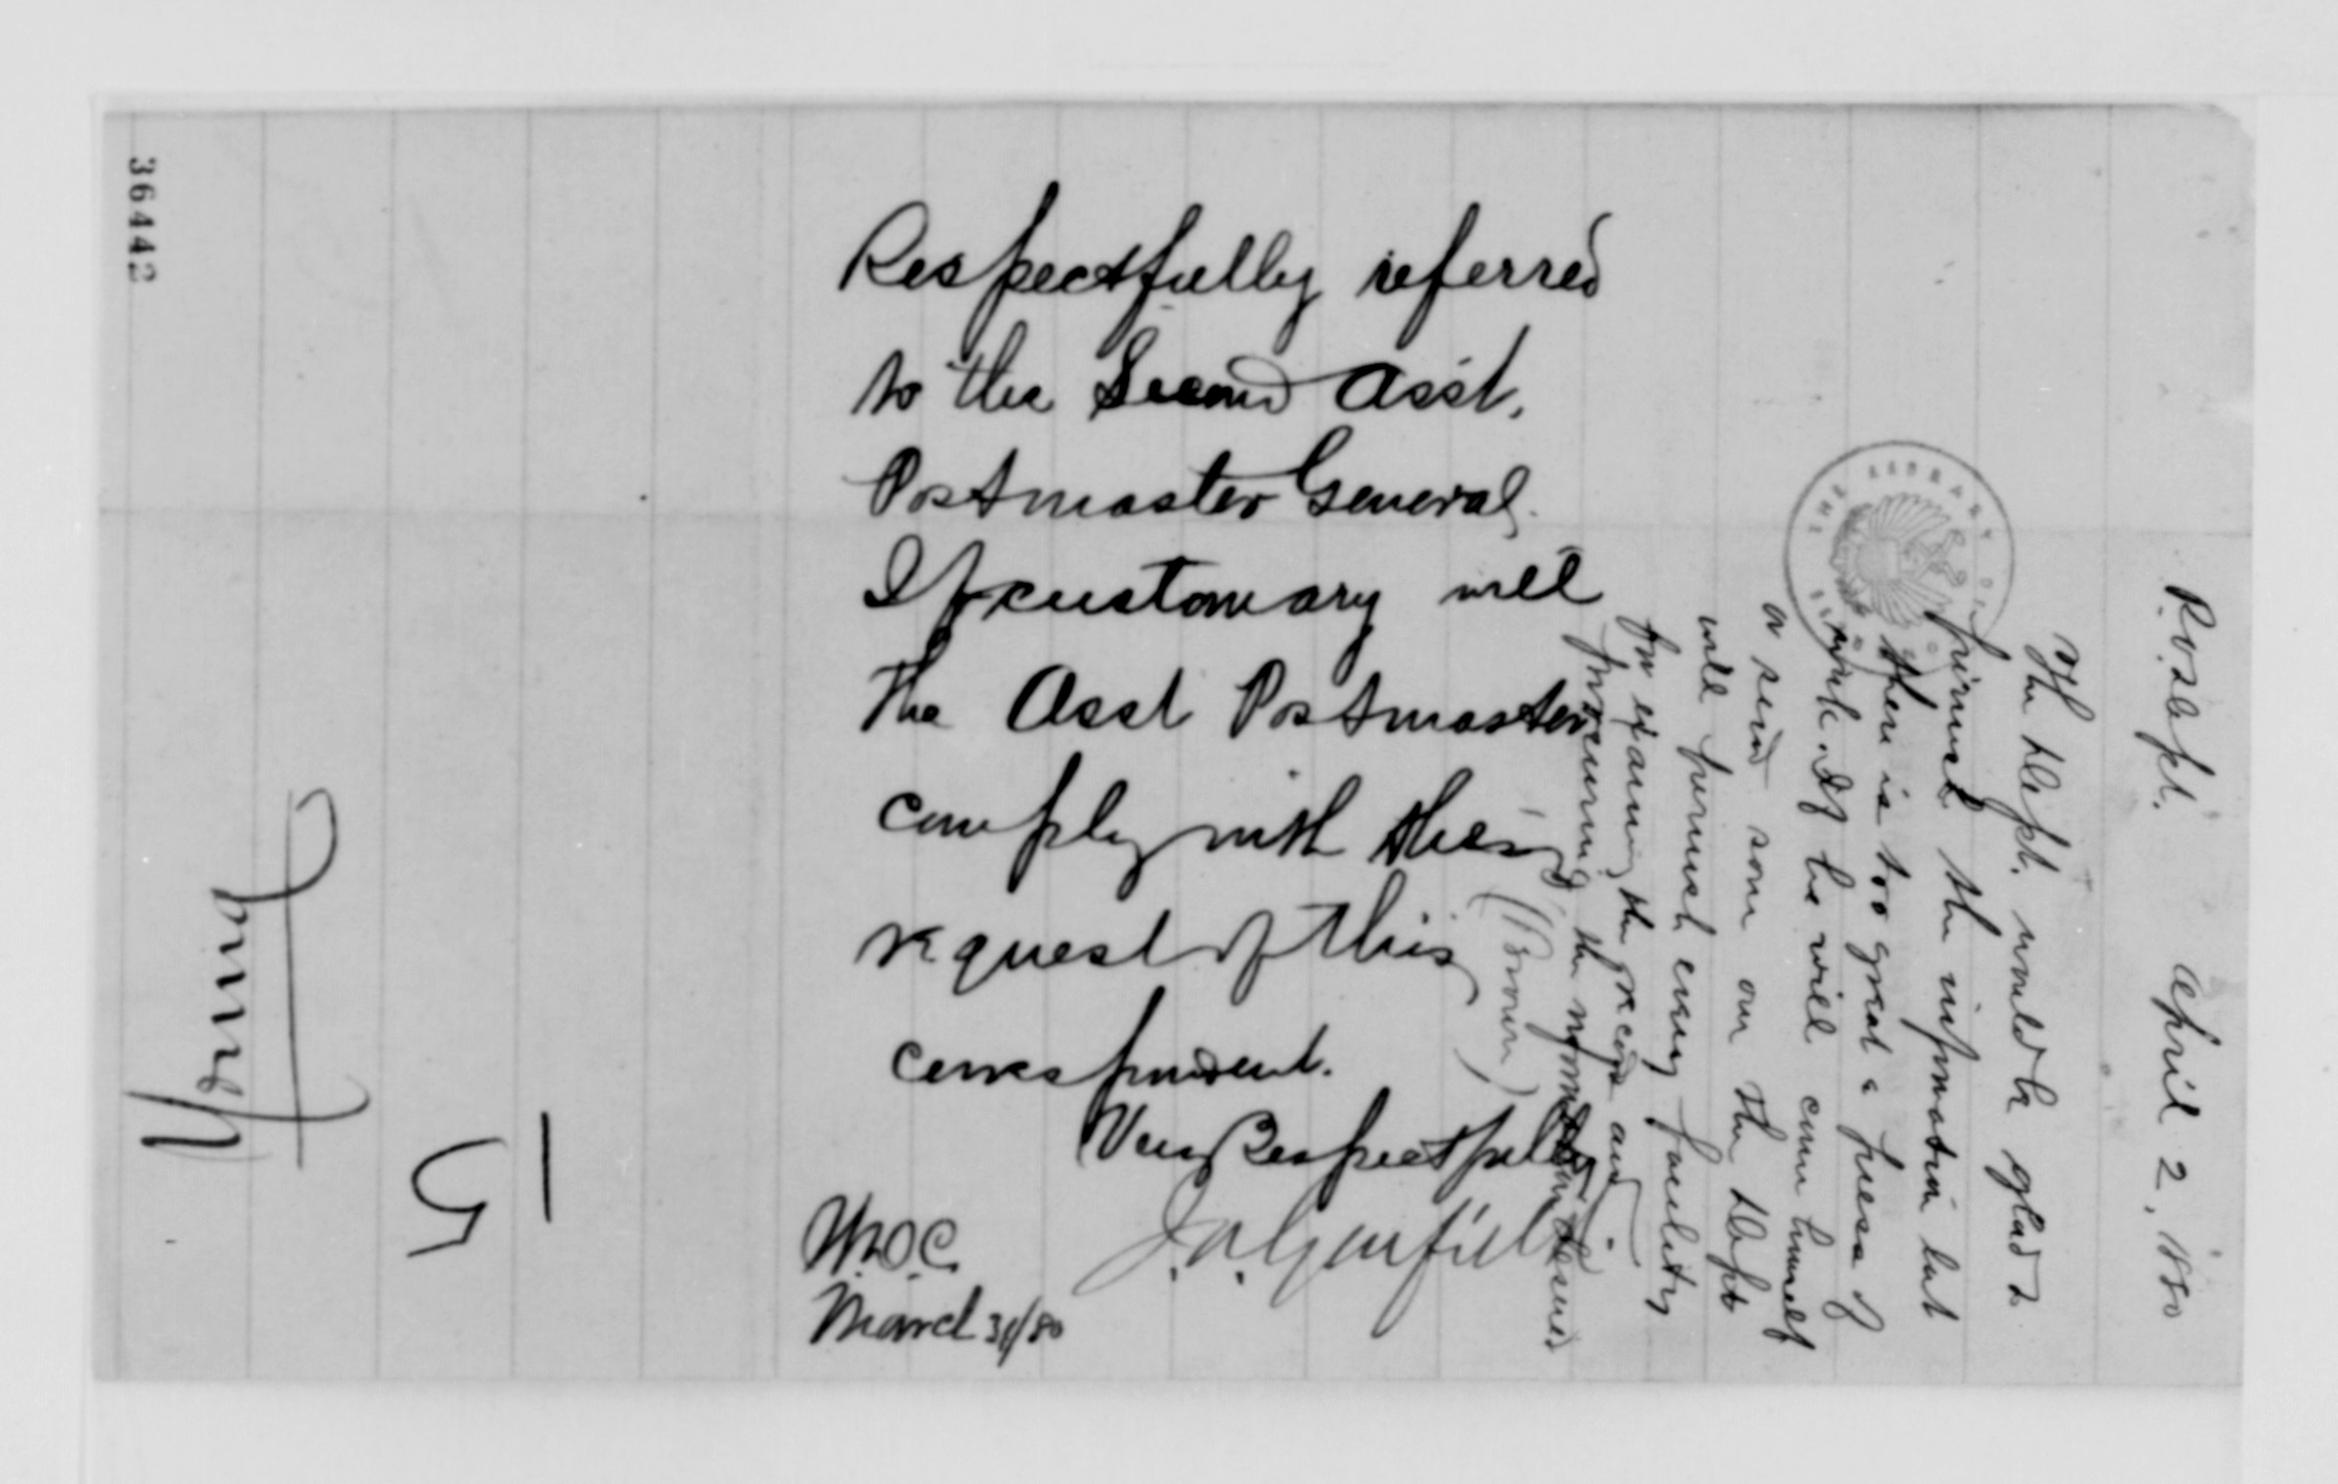 36442
Respectfully referred
to the Second Asst.
Postmaster General.
If customary will
the Asst Postmaster
comply with the
request of this
correspondent.
Very Respectfully
J. A. Garfield
M.O.C.
March 31/80
P.O. Dept. April 2, 1880
The Dept. would be glad to
furnish the information but
there is too great a press of
work. If he will come himself
or send some one the Dept
will furnish every facility
for examining the records and
procuring the information desired
(Brown)
Young
15
THE LIBRARY OF